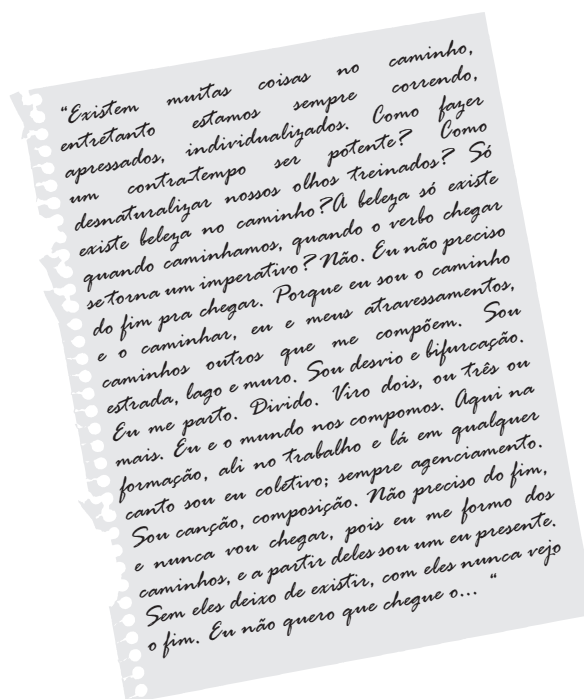 “Existem muitas coisas no caminho,
entretanto estamos sempre correndo,
apressados, individualizados. Como fazer
um contra-tempo ser potente? Como
desnaturalizar nossos olhos treinados? Só
existe beleza no caminho?A beleza só existe
quando caminhamos, quando o verbo chegar
se torna um imperativo? Não. Eu não preciso
do fim pra chegar. Porque eu sou o caminho
e o caminhar, eu e meus atravessamentos,
caminhos outros que me compõem. Sou
estrada, lago e muro. Sou desvio e bifurcação.
Eu me parto. Divido. Viro dois, ou três ou
mais. Eu e o mundo nos compomos. Aqui na
formação, ali no trabalho e lá em qualquer
canto sou eu coletivo; sempre agenciamento.
Sou canção, composição. Não preciso do fim,
e nunca vou chegar, pois eu me formo dos
caminhos, e a partir deles sou um eu presente.
Sem eles deixo de existir, com eles nunca vejo
o fim. Eu não quero que chegue o... “